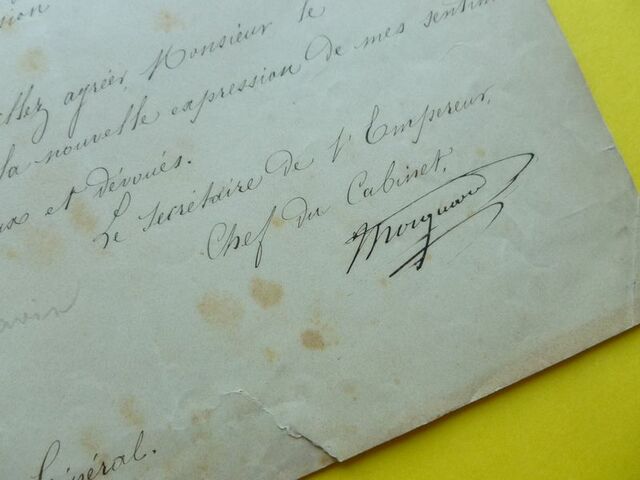 sion
llez agréer, Monsieur le
la nouvelle expression de mes sentim
ux et dévoués.
Le Secrétaire de l'Empereur,
Chef du Cabinet,
Mocquard
avin
Général.